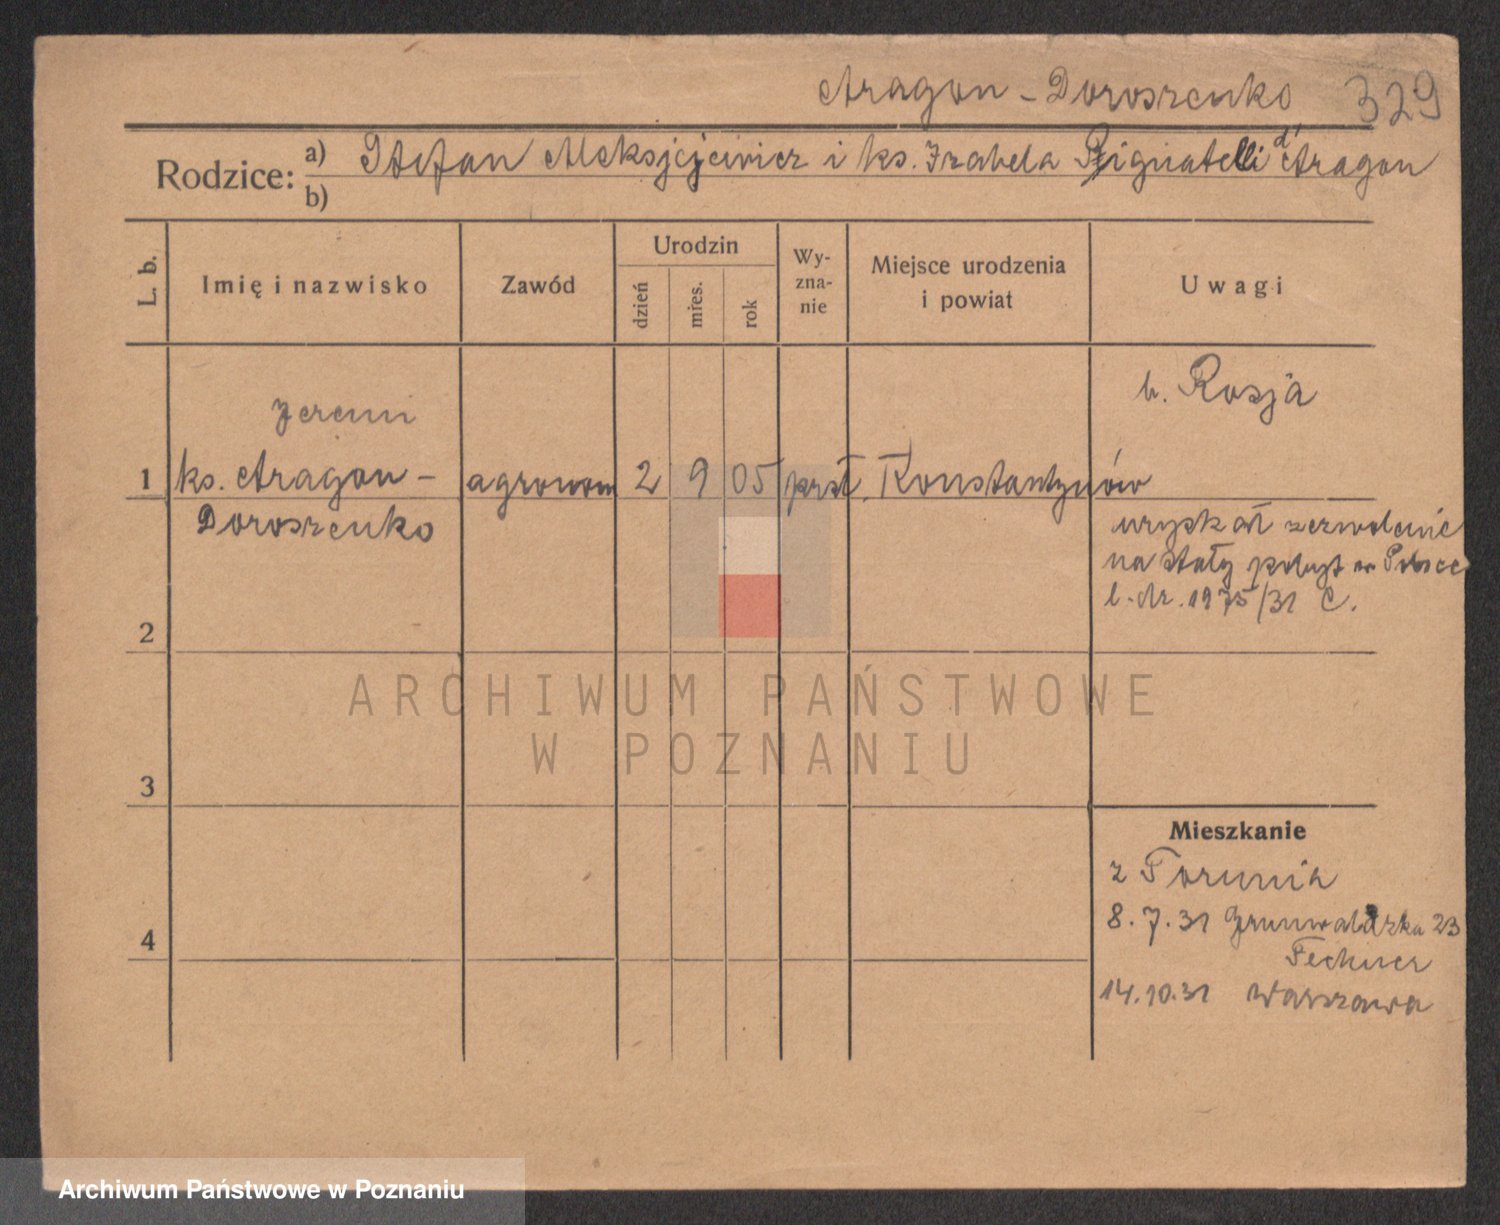 Aragon - Doroszenko 329
Rodzice: a) Stefan Aleksjejewicz i ks. Izabela Pignatelli d' Aragon
b)
L. b. Imię i nazwisko Zawód Urodzin dzień mies. rok Wy-zna-nie Miejsce urodzenia i powiat Uwagi
b. Rosja
Jeremi
1 ks. Aragon - agronom 2 9 05 prst. Konstantynów
Doroszenko
uzyskał zezwolenie
na stały pobyt w Polsce
l. dz. 1975/31 C.
2
ARCHIWUM PAŃSTWOWE
W POZNANIU
3
Mieszkanie
z Torunia
8.7.31 Grunwaldzka 23
4
Fechner
14.10.31 Warszawa
Archiwum Państwowe w Poznaniu